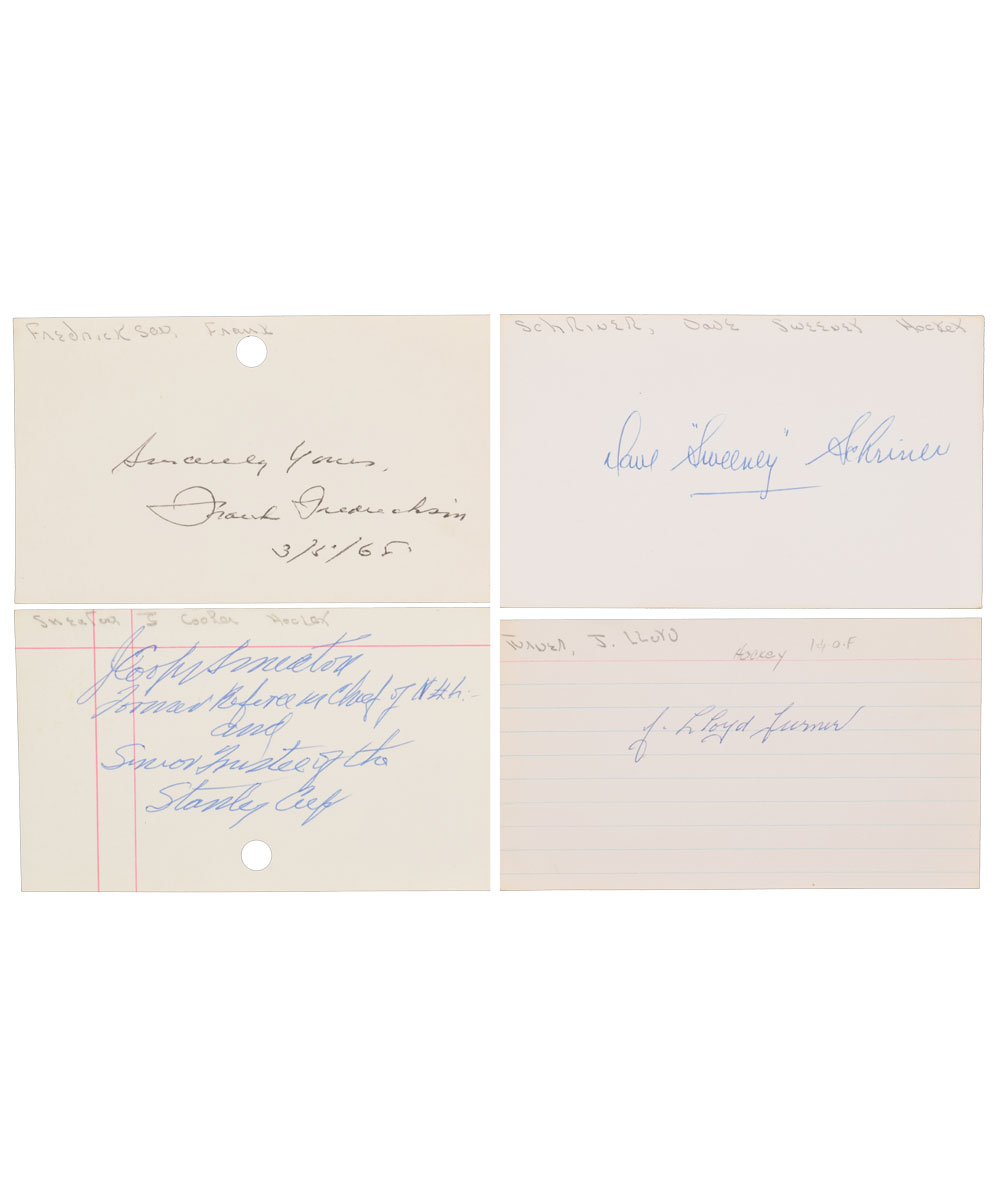 Fredrickson, Frank
Sincerely Yours,
Frank Fredrickson
3/5/65
Schriner, Dave Sweeney Hockey
Dave "Sweeney" Schriner
Smeaton J Cooper Hockey
J Cooper Smeaton
Former Referee in Chief of N.H.L.-
and
Senior Trustee of the
Stanley Cup
Turner, J. Lloyd
Hockey H.O.F
J. Lloyd Turner